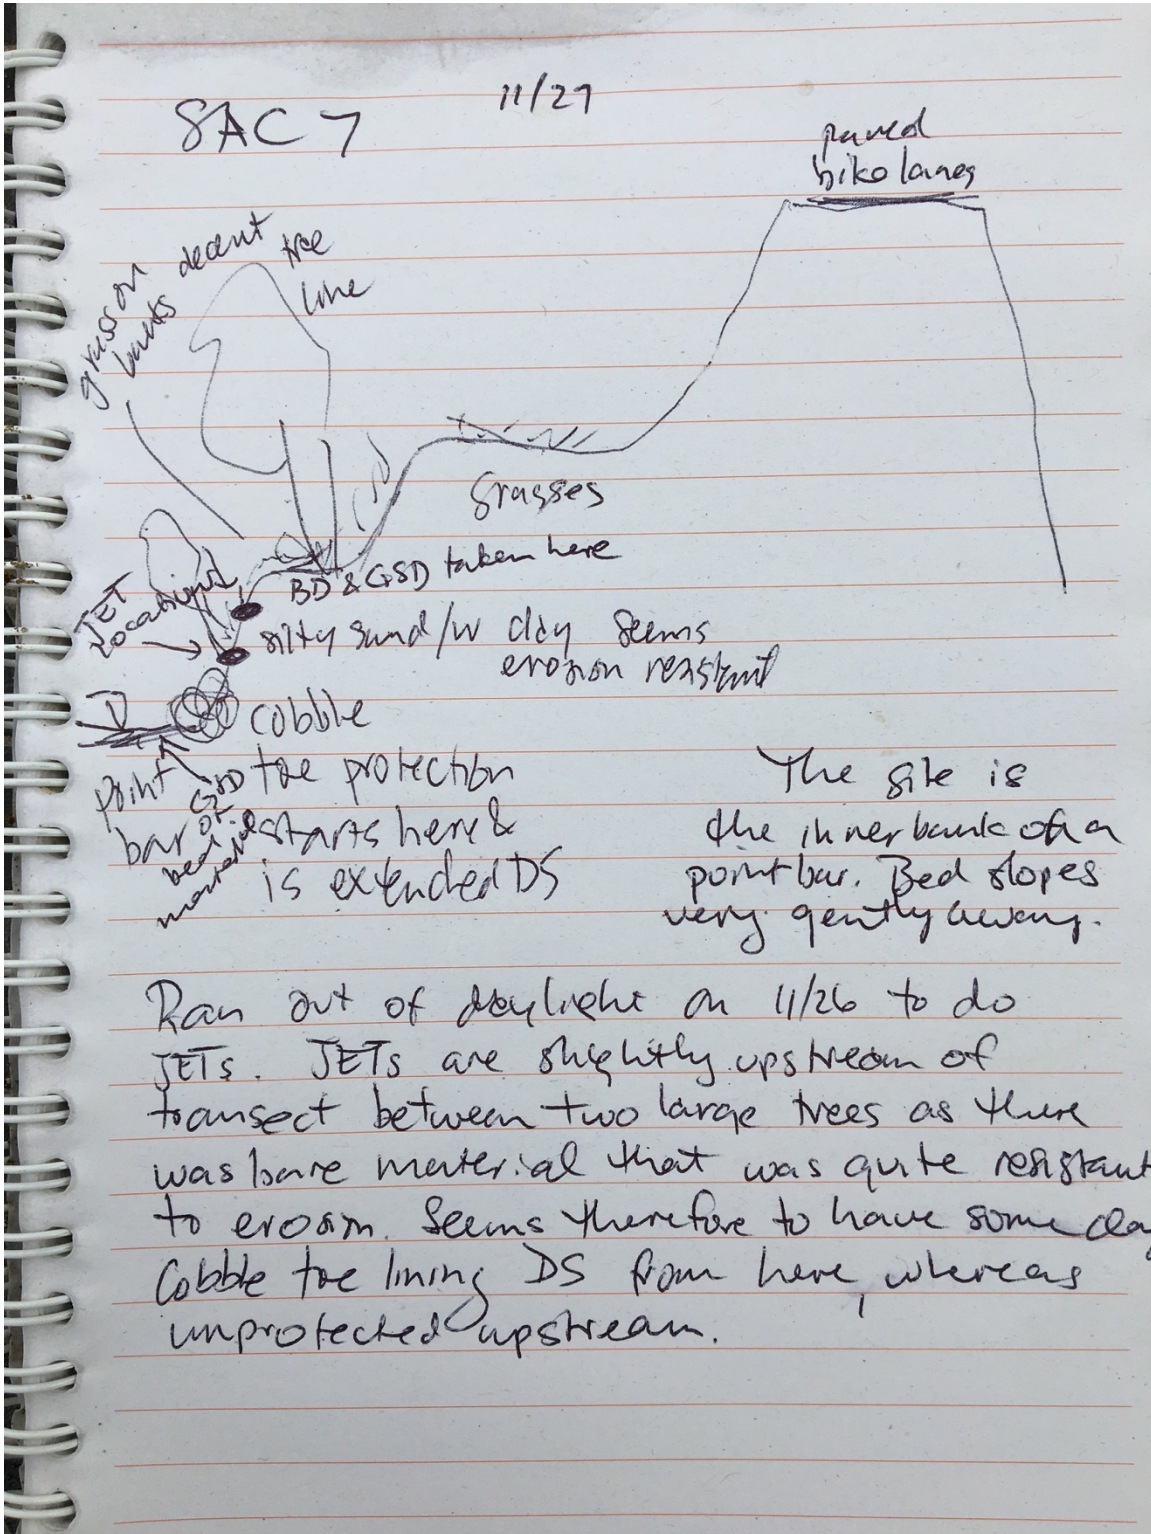 SAC 7
11/27
paved
bike lanes
grass on
banks
decent
tree
line
Grasses
BD & GSD taken here
JET
Locations
silty sand /w clay seems
erosion resistant
cobble
toe protection
starts here &
is extended DS
Point
bar
GSD
of
bed
material
The site is
the inner bank of a
point bar. Bed slopes
very gently away.
Ran out of daylight on 11/26 to do
JETs. JETs are slightly upstream of
transect between two large trees as there
was bare material that was quite resistant
to erosion. Seems therefore to have some clay
Cobble toe lining DS from here, whereas
unprotected upstream.